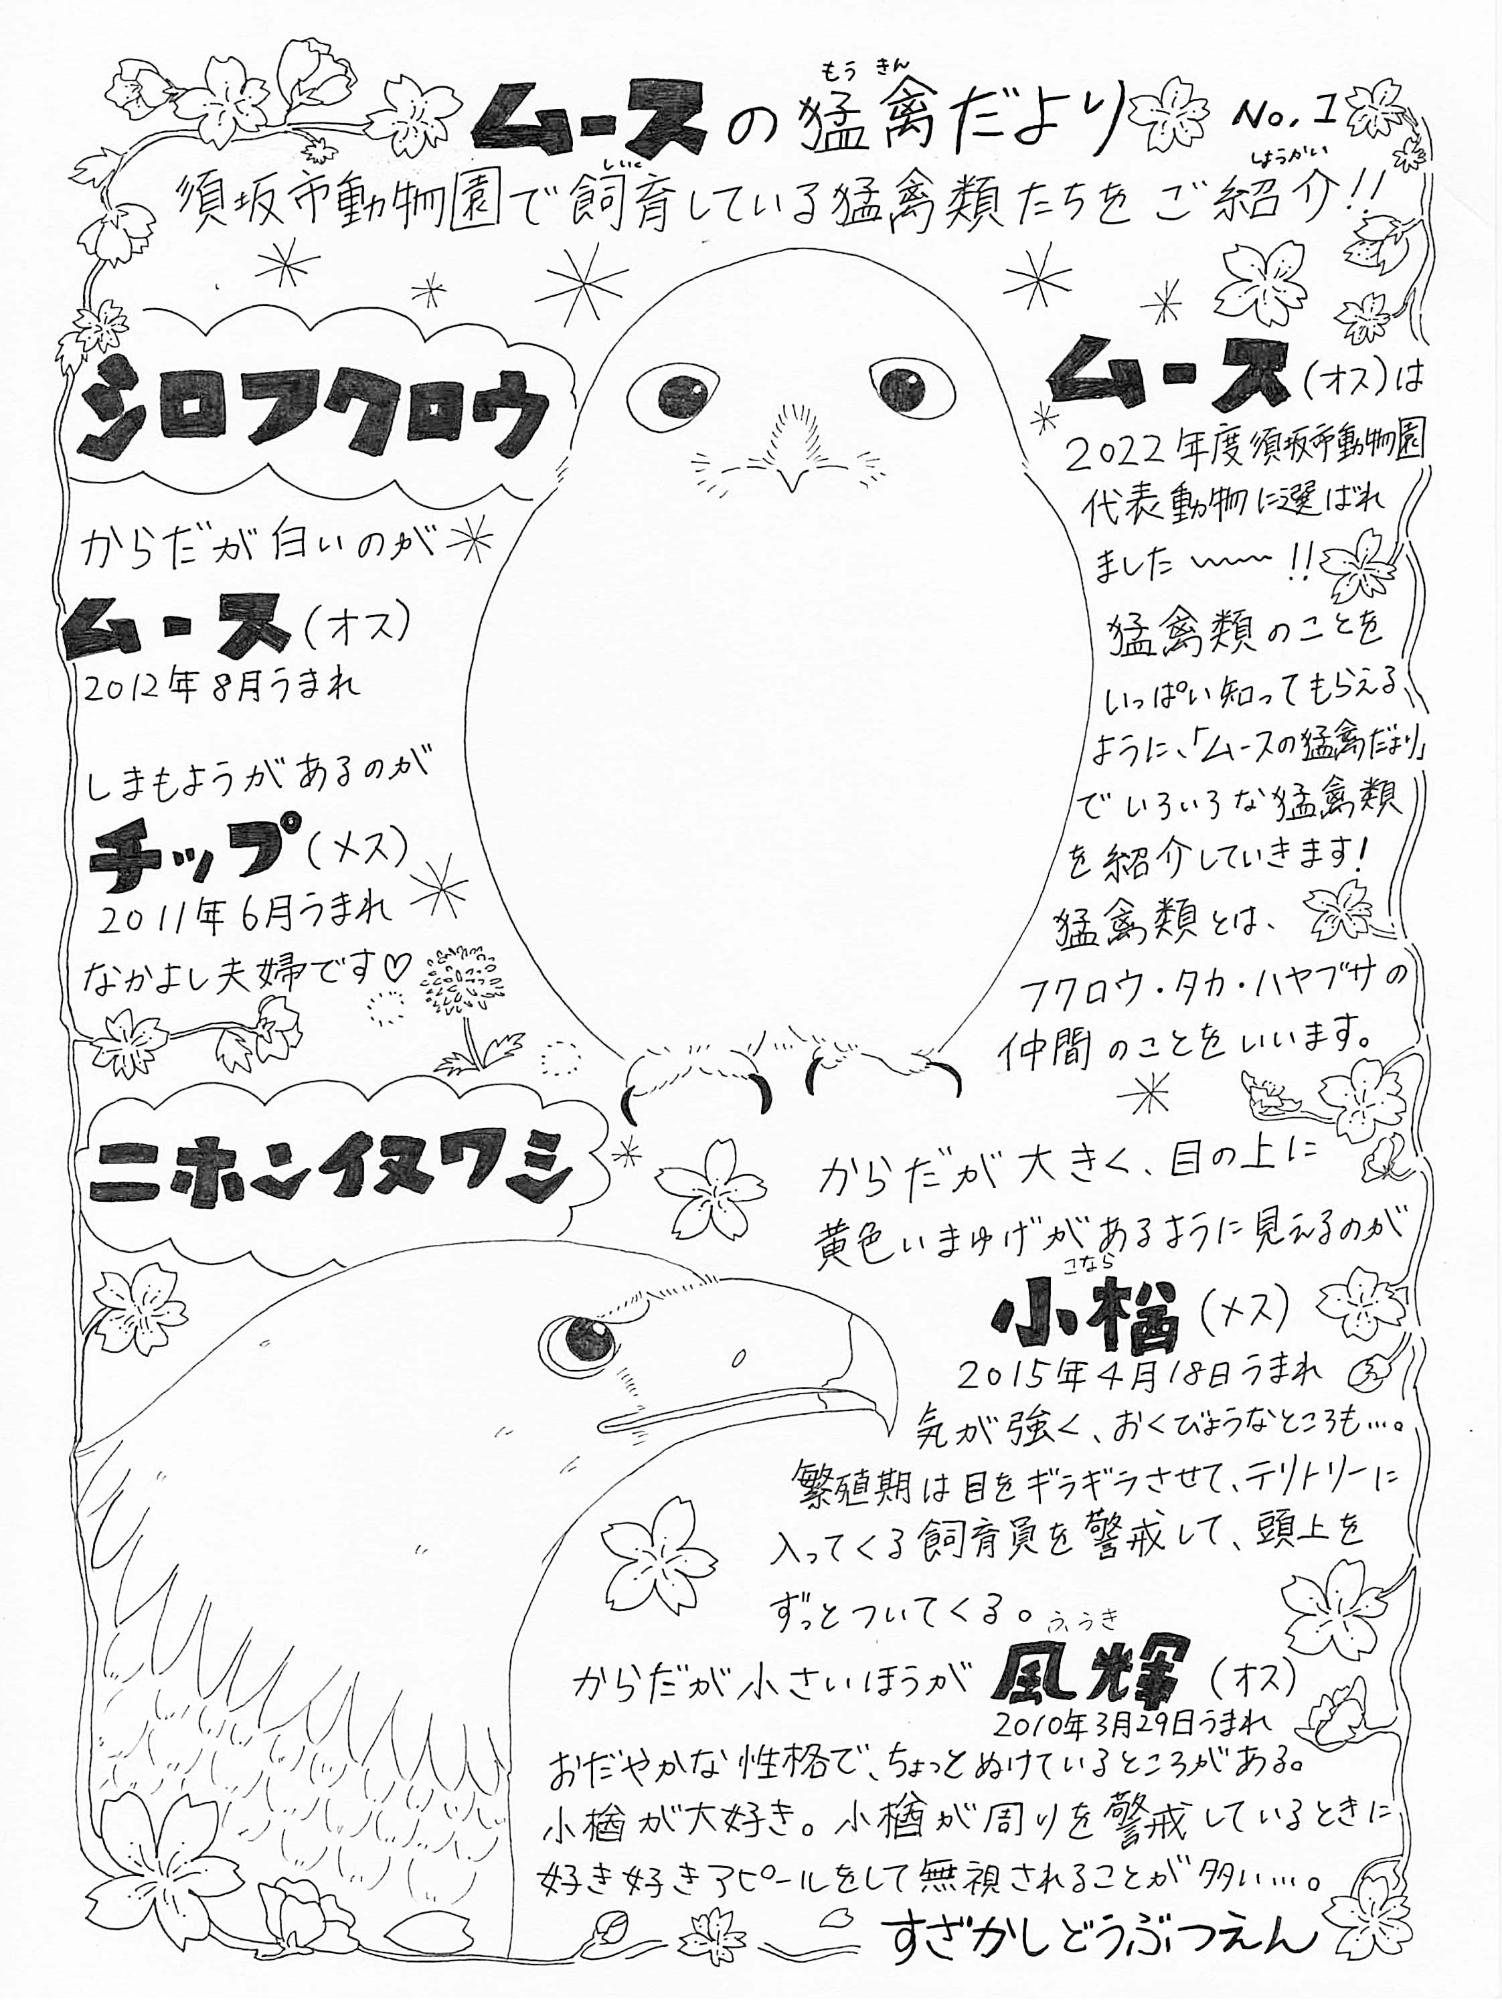 ムースの猛禽だより No.1
もうきん
須坂市動物園で飼育している猛禽類たちをご紹介!!
しいく
しょうかい
シロフクロウ
からだが白いのが
ムース(オス)
2012年8月うまれ
しまもようがあるのが
チップ(メス)
2011年6月うまれ
なかよし夫婦です♡
ムース(オス)は
2022年度須坂市動物園
代表動物に選ばれ
ました〜〜!!
猛禽類のことを
いっぱい知ってもらえる
ように、「ムースの猛禽だより」
でいろいろな猛禽類
を紹介していきます!
猛禽類とは、
フクロウ・タカ・ハヤブサの
仲間のことをいいます。
ニホンイヌワシ
からだが大きく、目の上に
黄色いまゆげがあるように見えるのが
こなら
小楢(メス)
2015年4月18日うまれ
気が強く、おくびょうなところも…。
繁殖期は目をギラギラさせて、テリトリーに
入ってくる飼育員を警戒して、頭上を
ずっとついてくる。
ふうき
からだが小さいほうが 風輝(オス)
2010年3月29日うまれ
おだやかな性格で、ちょっとぬけているところがある。
小楢が大好き。小楢が周りを警戒しているときに
好き好きアピールをして無視されることが多い…。
すざかしどうぶつえん